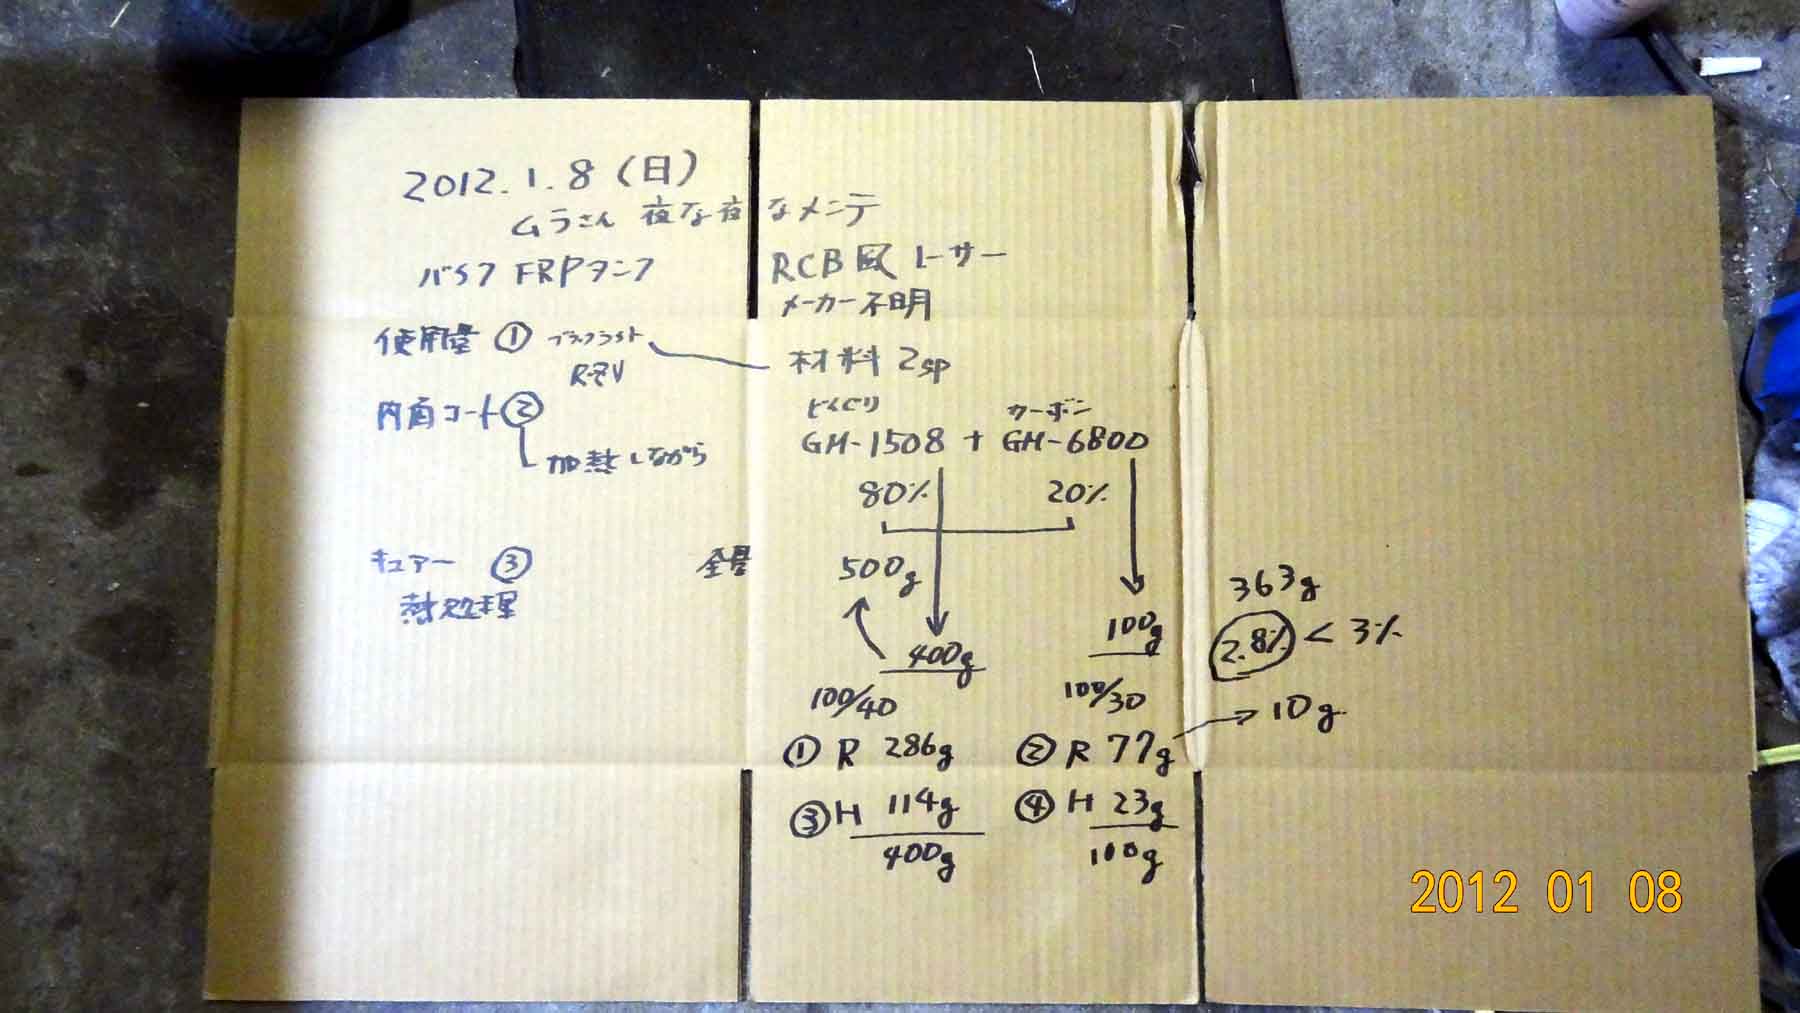 2012.1.8(日)
ムラさん 夜な夜なメンテ
バイク FRPタンク RCB風 レーサー
メーカー不明
使用量 ① 材料 2sp
内面コート ②
加熱しながら
どんぐり カーボン
GM-1508 + GM-6800
80% 20%
キュアー ③ 全量 500g
熱処理
400g 100g
363g
2.8% < 3%
100/40 100/30
① R 286g ② R 77g → 10g
③ H 114g ④ H 23g
400g 100g
2012 01 08